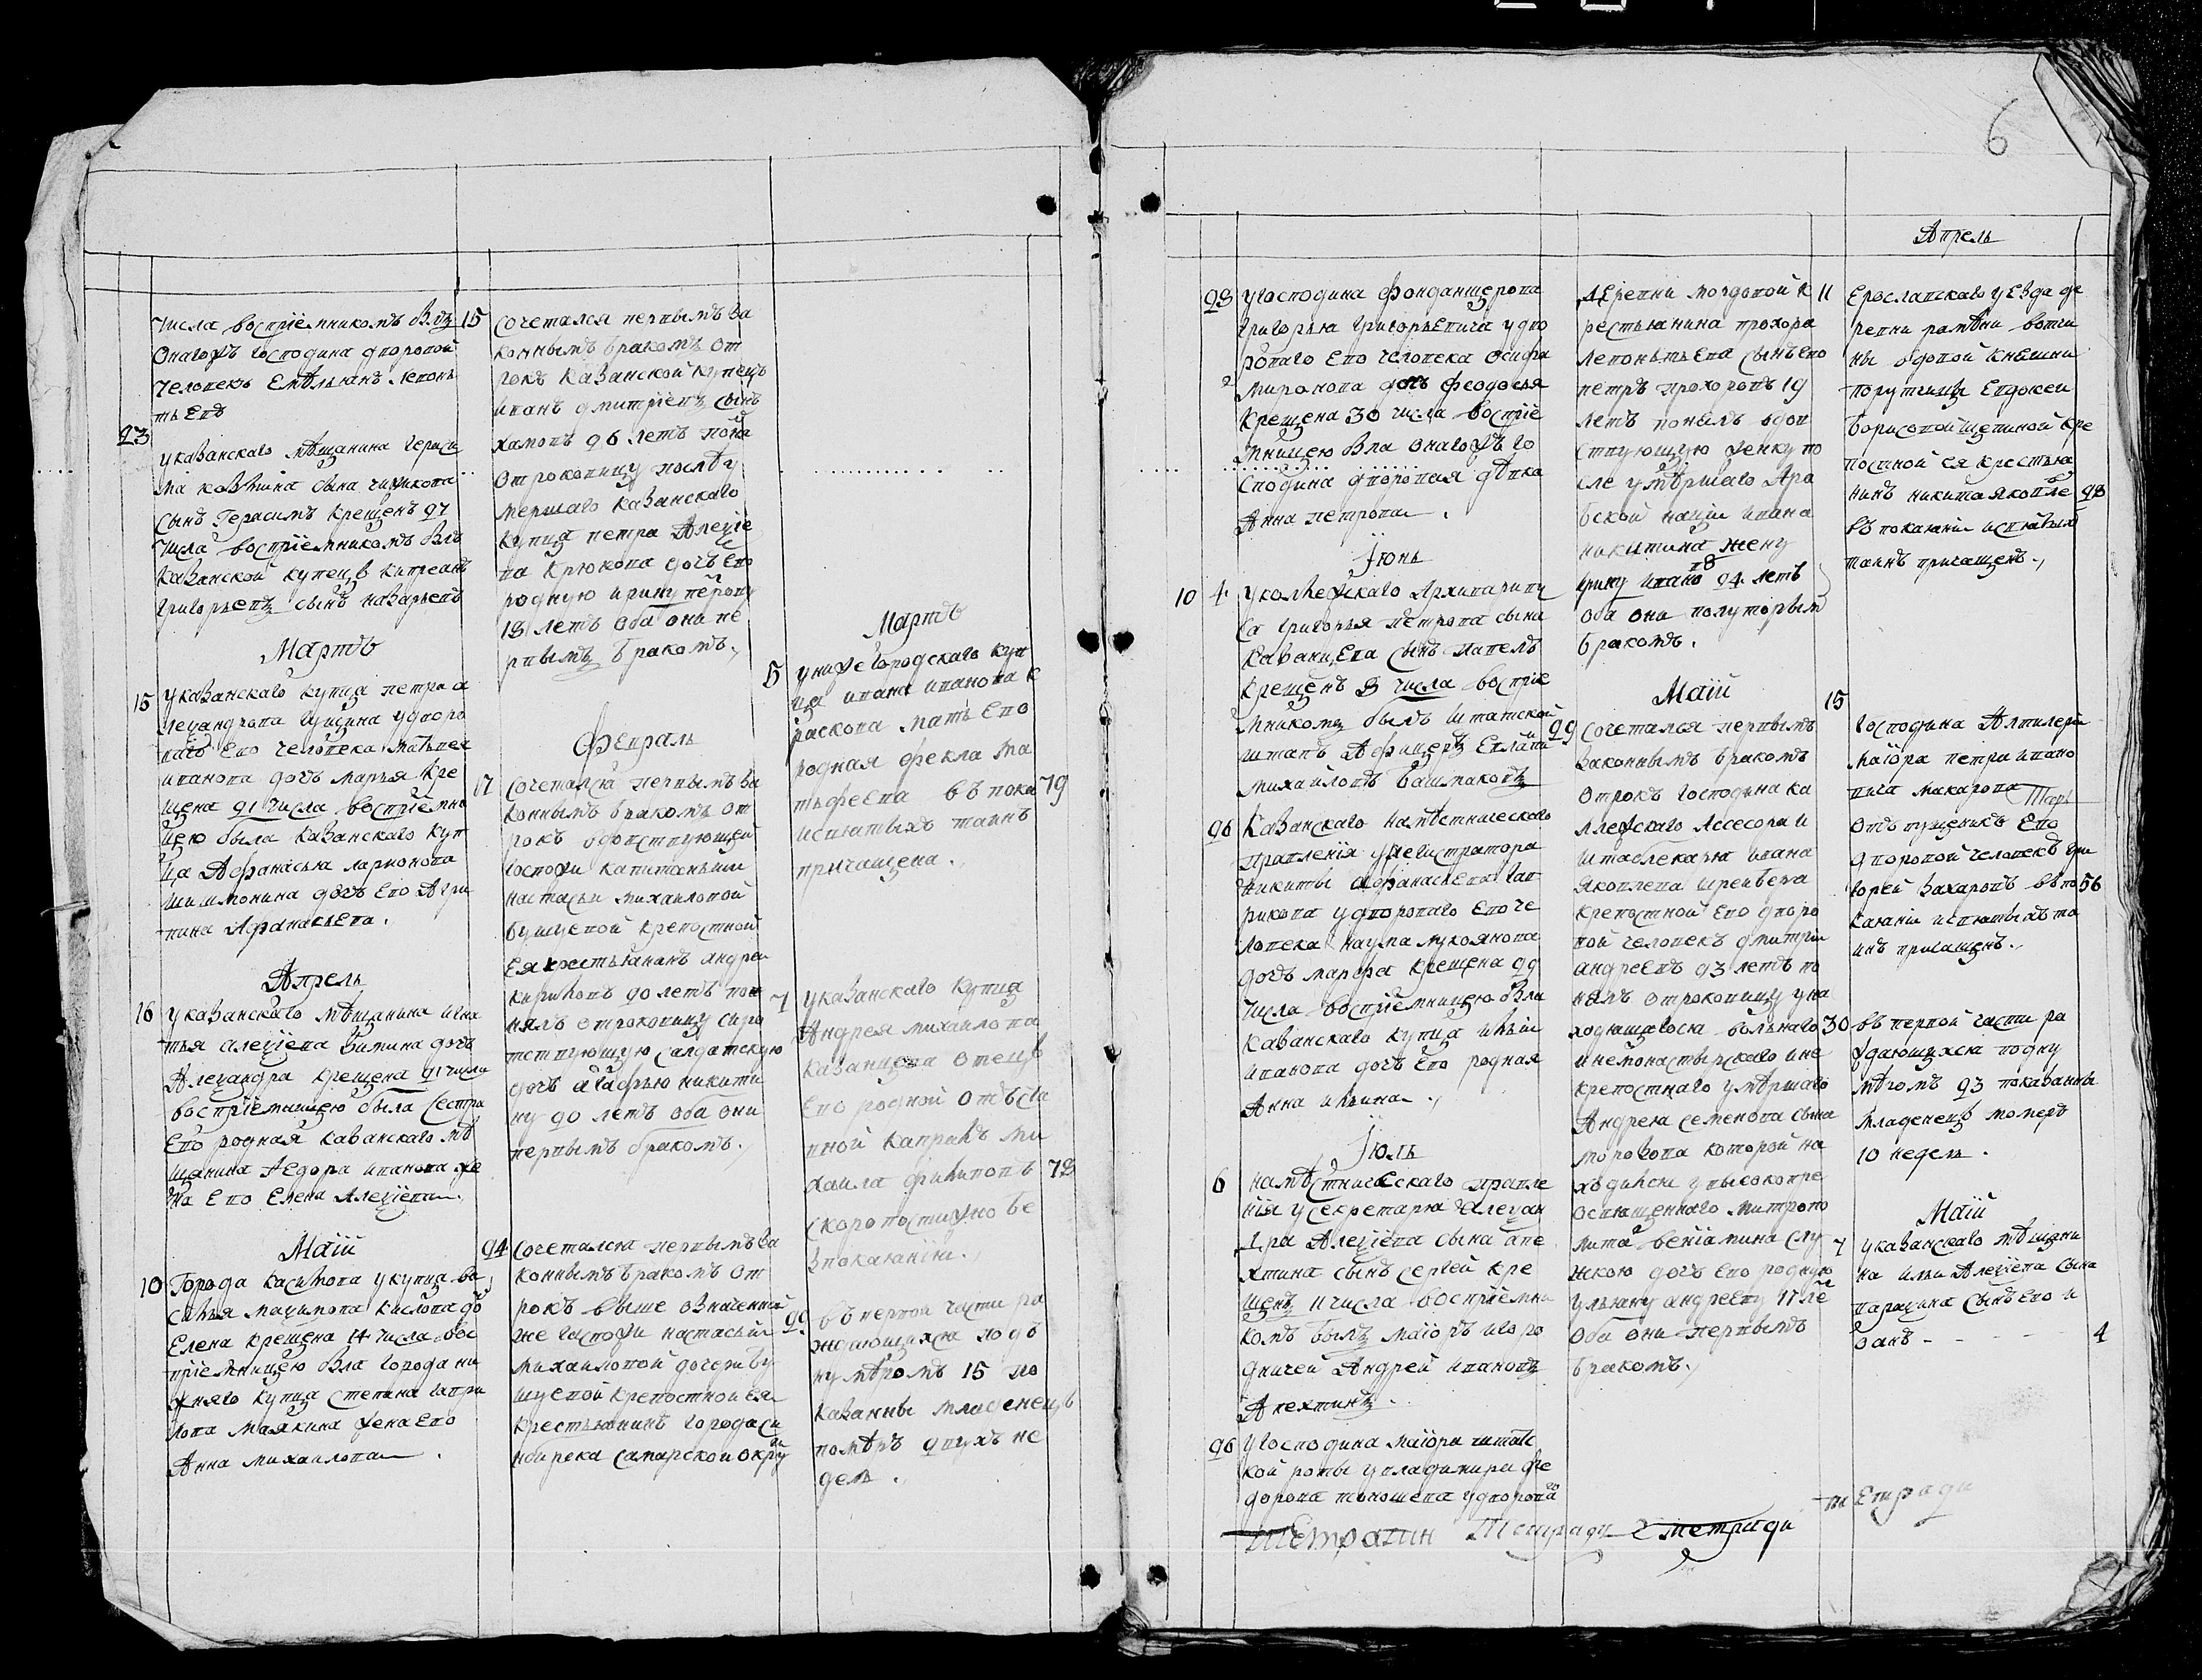 6
числа воспрiемникомъ былъ
онагожъ господина дворовой
человекъ Емѣльянъ Левонь
тьевъ
23
у казанскаго мѣщанина Гераси
ма козмина сына чижикова
сынъ Герасимъ крещенъ 27
числа воспрiемникомъ былъ
казанской купецъ кипреанъ
григорьевъ сынъ назарьевъ
Мартъ
15 у казанскаго купца петра а
лександрова у дворо
ваго ево человека матвея
иванова дочь марья кре
щена 21 числа воспрiемни
цею была казанскаго куп
ца Афанасья ларионова
дочь ево Агри
пина Афанасьева.
Апрель
16 у казанскаго мѣщанина игна
тья алексiева зимина дочь
Александра крещена 21 числа
воспрiемницею была сестра
ево родная казанскаго мѣ
щанина Федора иванова же
на ево Елена Алексiева.
Маiй
10 Города касимова у купца ва
силья максимова кислова до
Елена крещена 14 числа вос
прiемницею была города ни
жняго купца степана гаври
лова маякина жена ево
Анна михаилова.
15 сочетался первымъ за
коннымъ бракомъ от
рокъ казанской купецъ
иванъ дмитрiевъ сынъ
хамовъ 26 летъ поня
отроковицу послѣ у
мершаго казанскаго
купца петра Алексiе
ва крюкова дочь ево
родную ирину петрову
18 летъ оба они пе
рвымъ бракомъ.
Февраль
17 сочетался первымъ за
коннымъ бракомъ от
рокъ вдовствующей
госпожи капитанши
настасьи михаиловой
крепостной
ея крестьянинъ андреи
кириловъ 20 летъ по
нялъ отроковицу сиро
тствующую салдатскую
дочь агафью никити
ну 20 летъ оба они
первымъ бракомъ.
24 сочетался первымъ за
коннымъ бракомъ от
рокъ выше означенной
же госпожи настасьи
михаиловой дочери бу
крепостной ея
крестьянинъ города си
нбирска самарской окру
Мартъ
5 у нижегородскаго куп
ца ивана иванова к
раскова мать ево
родная фекла ма
тфеева въ пока 79
и святыхъ таинъ
причащена.
7 у казанскаго купца
Андрея михаилова
казанцова отецъ
ево родной отъста
вной капралъ ми
хаила филиповъ 78
скоропостижно бе
зпокаянiи.
29 въ первой части ра
ждающихся подъ
нумѣромъ 15 по
казанны младенецъ
помѣръ двухъ не
дель.
28 у господина фонданщерова
григорья григорьевича у дво
роваго ево человека осифа
миронова дочь феодосья
крещена 30 числа воспрiе
мницею была онагожъ го
сподина дворовая дѣвка
Анна петрова.
Iюнь
10 4 у колѣжскаго Архивариу
са григорья петрова сына
казанцева сынъ павелъ
крещенъ 8 числа воспрiе
мникомъ былъ штатской
штапъ Афицеръ Евлани
михаиловъ башмаковъ
26 казанскаго намѣстническаго
правленiя у регистратора
никиты афанасьева гав
рикова у двороваго ево че
ловека наума лукоянова
дочь марфа крещена 29
числа воспрiемницею была
казанскаго купца ильи
иванова дочь ево родная
Анна ильина.
Iюль
6 намѣстническаго правле
нiя у секретаря алексан
дра Алексiева сына апе
хтина сынъ сергей кре
щенъ 11 числа воспрiемни
комъ былъ маiоръ и горо
дничей Андрей ивановъ
Апехтинъ.
26 у господина маiора штатс
кой роты у владимира фе
дорова у дворова
деревни мордовой к
рестьянина прохора
левонтьева сынъ ево
петръ прохоровъ 19
летъ понялъ вдов
ствующую женку по
сле умѣршаго Ара
бской нацiи ивана
никитина жену
ирину иванову 24 летъ
оба они полуторым
бракомъ.
Маiй
29 сочетался первымъ
законнымъ бракомъ
отрокъ господина ка
ллежскаго Ассесора и
штаблекаря ивана
яковлева шрейбера
крепостной ево дворо
вой человекъ дмитрiи
андреевъ 23 летъ по
нялъ отроковицу у на
ходящагося больнаго
и немонастырскаго и не
крепостнаго умѣршаго
Андрея семенова сына
морозова которой на
ходился у высокопре
освященнаго митропо
лита венiамина слу
жкою дочь ево родную
ульяну андрееву 17 ле
оба они первымъ
бракомъ.
Апрель
11 Ерославскаго уезда де
ревни раменки вотчи
ны вдовой княгини
порутчицы Евдокеи
борисовой кре
постной ея крестья
нинъ никита яковле 28
въ покаянiи и святыхъ
таинъ причащенъ.
15
господина Алтилерiи
маiора петра ивано
вича макарова
отъпущеникъ ево
дворовой человекъ гри
горей захаровъ въ по 56
каянiи и святыхъ та
инъ причащенъ.
30 въ первой части ра
ждающихся подну
мѣромъ 23 показанны
младенецъ померъ
10 недель.
Маiй
7 у казанскаго мѣщани
на ильи Алексiева сына
паракина сынъ ево и
ванъ - - - 4
тетради
Тетради тетради